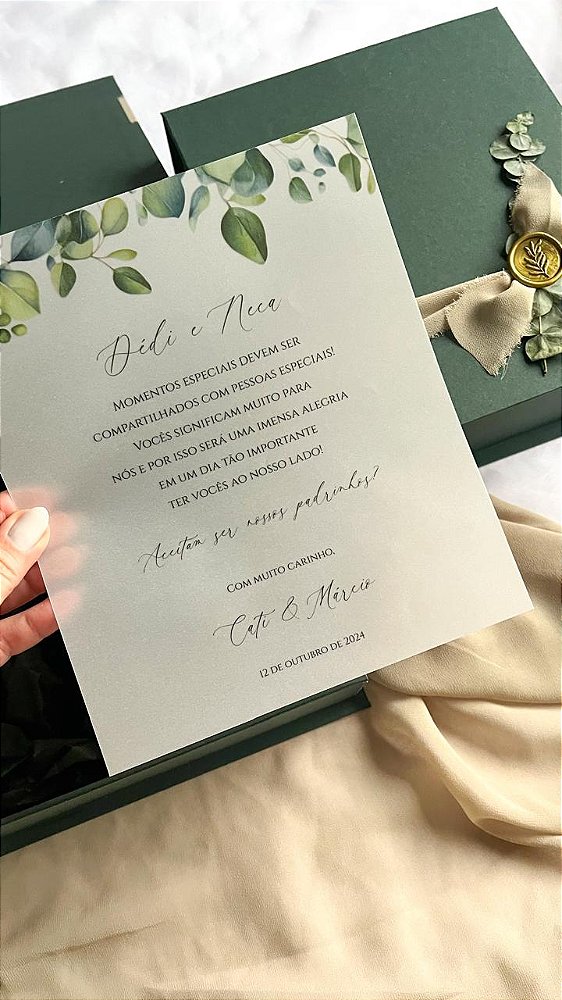 Dédi e Neca
MOMENTOS ESPECIAIS DEVEM SER
COMPARTILHADOS COM PESSOAS ESPECIAIS!
VOCÊS SIGNIFICAM MUITO PARA
NÓS E POR ISSO SERÁ UMA IMENSA ALEGRIA
EM UM DIA TÃO IMPORTANTE
TER VOCÊS AO NOSSO LADO!
Aceitam ser nossos padrinhos?
COM MUITO CARINHO,
Cati & Márcio
12 DE OUTUBRO DE 2024